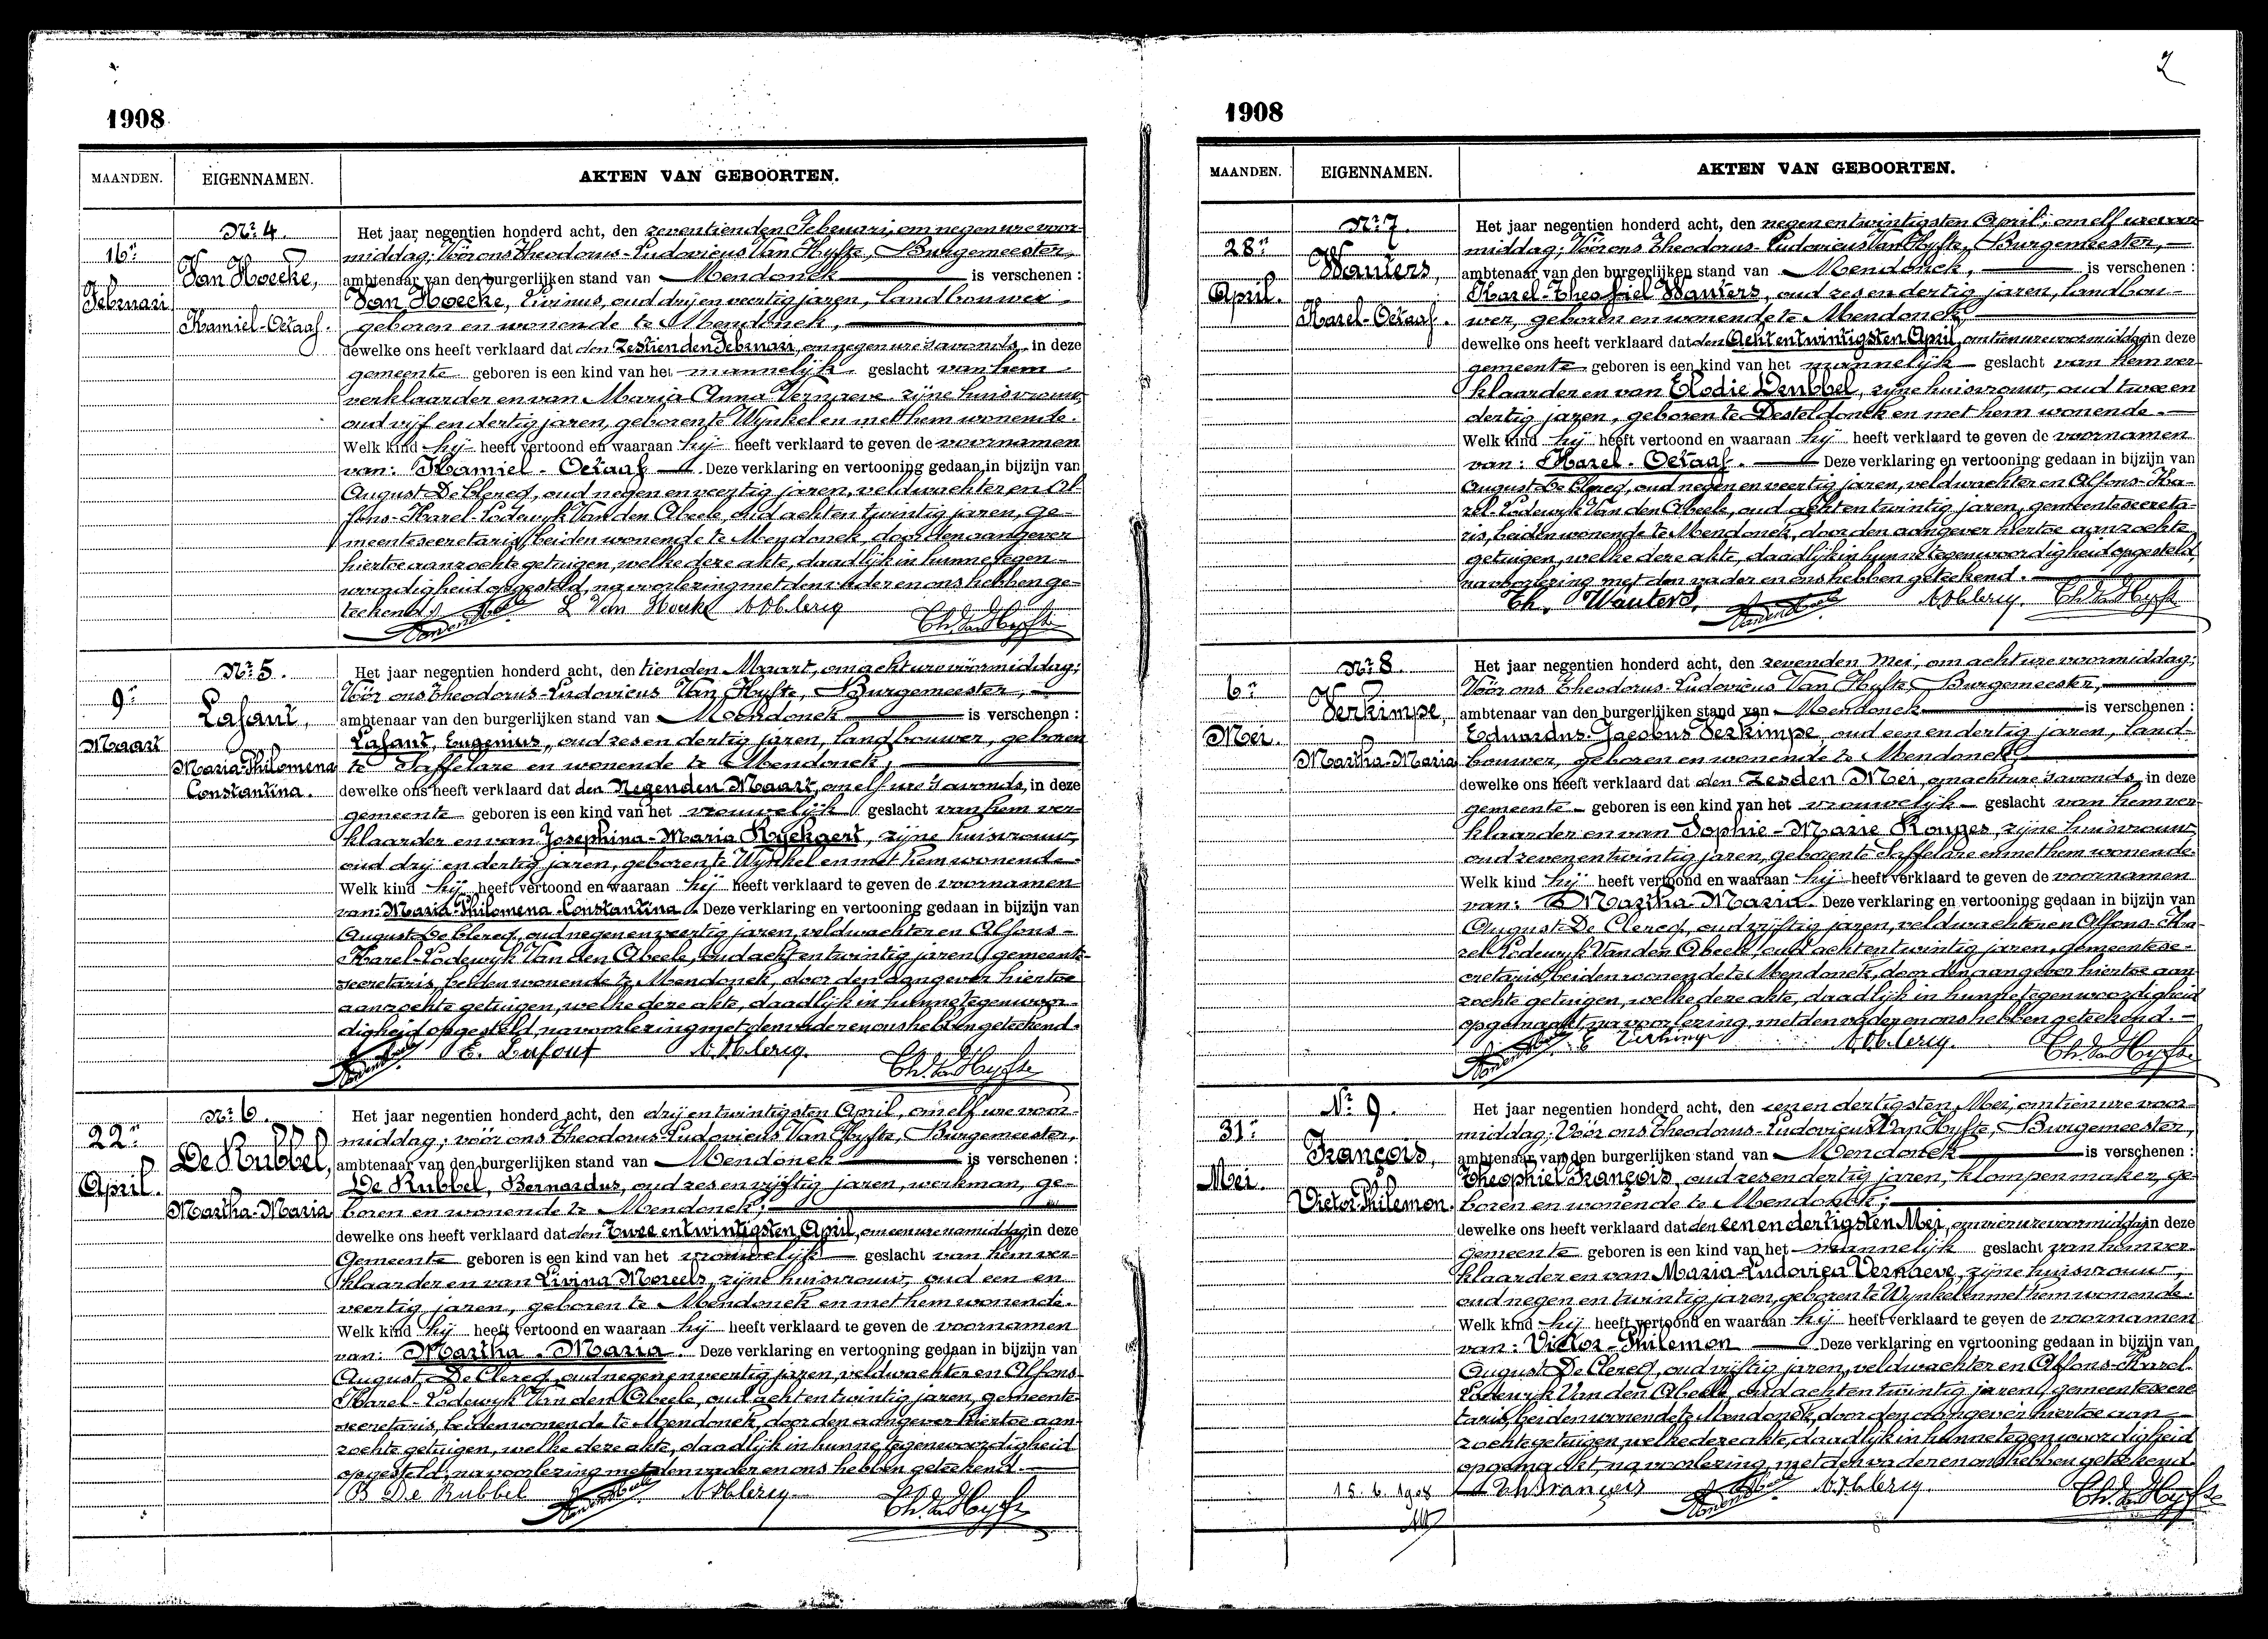 1908
MAANDEN. EIGENNAMEN. AKTEN VAN GEBOORTEN.
Nr. 4.
16n
Februari
Van Hoecke,
Kamiel-Octaaf.
Het jaar negentien honderd acht, den zeventienden Februari, om negen ure voor-
middag; Vóór ons Theodorus-Ludovicus Van Hyfte, Burgemeester,
ambtenaar van den burgerlijken stand van Mendonck is verschenen :
Van Hoecke, Livinus, oud drij en veertig jaren, landbouwer,
geboren en wonende te Mendonck,
dewelke ons heeft verklaard dat den Zestienden Februari, om negen ure 's avonds, in deze
gemeente geboren is een kind van het mannelijk geslacht van hem
verklaarder en van Maria Anna Vernaeve zijne huisvrouw,
oud vijf en dertig jaren, geboren te Wynkel en met hem wonende.
Welk kind hij heeft vertoond en waaraan hij heeft verklaard te geven de voornamen
van: Kamiel - Octaaf Deze verklaring en vertooning gedaan in bijzijn van
August De Clercq, oud negen en veertig jaren, veldwachter en Al-
fons-Karel-Lodewyk Van den Abeele, oud acht en twintig jaren, ge-
meentesecretaris, beiden wonende te Mendonck, door den aangever
hiertoe aanzochte getuigen, welke deze akte, daadlijk in hunne tegen-
woordigheid opgesteld, na voorlezing met den vader en ons hebben ge-
teekend.
L Van Hoecke A De Clercq Th. Van Hyfte
Nr. 5.
9n
Maart
Lafaut,
Maria-Philomena
Constantina.
Het jaar negentien honderd acht, den tienden Maart, om acht ure vóórmiddag;
Vóór ons Theodorus-Ludovicus Van Hyfte, Burgemeester,
ambtenaar van den burgerlijken stand van Mendonck is verschenen :
Lafaut, Eugenius, oud zes en dertig jaren, landbouwer, geboren
te Saffelare en wonende te Mendonck,
dewelke ons heeft verklaard dat den Negenden Maart, om elf ure 's avonds, in deze
gemeente geboren is een kind van het vrouwelijk geslacht van hem ver-
klaarder en van Josephina-Maria Ryckaert, zijne huisvrouw,
oud drij en dertig jaren, geboren te Wynkel en met hem wonende
Welk kind hij heeft vertoond en waaraan hij heeft verklaard te geven de voornamen
van: Maria-Philomena-Constantina. Deze verklaring en vertooning gedaan in bijzijn van
August De Clercq, oud negen en veertig jaren, veldwachter en Alfons-
Karel-Lodewyk Van den Abeele, oud acht en twintig jaren, gemeente-
secretaris, beiden wonende te Mendonck, door den aangever hiertoe
aanzochte getuigen, welke deze akte, daadlijk in hunne tegenwoor-
digheid opgesteld, na voorlezing met den vader en ons hebben geteekend.
E. Lafaut A De Clercq. Th. Van Hyfte
Nr. 6.
22n
April.
De Rubbel,
Martha-Maria
Het jaar negentien honderd acht, den drij en twintigsten April, om elf ure voor-
middag; vóór ons Theodorus-Ludovicus Van Hyfte, Burgemeester,
ambtenaar van den burgerlijken stand van Mendonck is verschenen :
De Rubbel, Bernardus, oud zes en vijftig jaren, werkman, ge-
boren en wonende te Mendonck;
dewelke ons heeft verklaard dat den Twee en twintigsten April, om een ure namiddag, in deze
Gemeente geboren is een kind van het vrouwelijk geslacht van hem ver-
klaarder en van Livina Moreels, zijne huisvrouw, oud een en
veertig jaren, geboren te Mendonck en met hem wonende.
Welk kind hij heeft vertoond en waaraan hij heeft verklaard te geven de voornamen
van: Martha-Maria. Deze verklaring en vertooning gedaan in bijzijn van
August De Clercq, oud negen en veertig jaren, veldwachter en Alfons
Karel-Lodewyk Van den Abeele, oud acht en twintig jaren, gemeente-
secretaris, beiden wonende te Mendonck, door den aangever hiertoe aan-
zochte getuigen, welke deze akte, daadlijk in hunne tegenwoordigheid
opgesteld, na voorlezing met den vader en ons hebben geteekend.
B De Rubbel A De Clercq Th. Van Hyfte
2
1908
MAANDEN. EIGENNAMEN. AKTEN VAN GEBOORTEN.
Nr. 7.
28n
April.
Wauters,
Karel-Octaaf.
Het jaar negentien honderd acht, den negen en twintigsten April, om elf ure voor
middag; Vóór ons Theodorus-Ludovicus Van Hyfte, Burgemeester,
ambtenaar van den burgerlijken stand van Mendonck, is verschenen :
Karel-Theofiel Wauters, oud zes en dertig jaren, landbou-
wer, geboren en wonende te Mendonck
dewelke ons heeft verklaard dat den Acht en twintigsten April, om tien ure voormiddag in deze
gemeente geboren is een kind van het mannelijk geslacht van hem ver-
klaarder en van Elodie Denbbel, zijne huisvrouw, oud twee en
dertig jaren, geboren te Desteldonck en met hem wonende.
Welk kind hij heeft vertoond en waaraan hij heeft verklaard te geven de voornamen
van: Karel-Octaaf. Deze verklaring en vertooning gedaan in bijzijn van
August De Clercq, oud negen en veertig jaren, veldwachter en Alfons-Ka-
rel-Lodewyk Van den Abeele, oud acht en twintig jaren, gemeentesecreta-
ris, beiden wonende te Mendonck, door den aangever hiertoe aanzochte
getuigen, welke deze akte, daadlijk in hunne tegenwoordigheid opgesteld,
na voorlezing met den vader en ons hebben geteekend.
Th. Wauters. A De Clercq. Th. Van Hyfte
Nr. 8.
6n
Mei.
Verkimpe,
Martha-Maria
Het jaar negentien honderd acht, den zevenden Mei, om acht ure voormiddag;
Vóór ons Theodorus-Ludovicus Van Hyfte, Burgemeester,
ambtenaar van den burgerlijken stand van Mendonck is verschenen :
Eduardus-Jacobus Verkimpe, oud een en dertig jaren, land-
bouwer, geboren en wonende te Mendonck
dewelke ons heeft verklaard dat den Zesden Mei, om acht ure 's avonds, in deze
gemeente geboren is een kind van het vrouwelijk geslacht van hem ver-
klaarder en van Sophie-Marie Rouges, zijne huisvrouw
oud zeven en twintig jaren, geboren te Saffelare en met hem wonende.
Welk kind hij heeft vertoond en waaraan hij heeft verklaard te geven de voornamen
van: Martha-Maria. Deze verklaring en vertooning gedaan in bijzijn van
August De Clercq, oud vijftig jaren, veldwachter en Alfons-Ka-
rel-Lodewyk Van den Abeele, oud acht en twintig jaren, gemeentese-
cretaris, beiden wonende te Mendonck, door den aangever hiertoe aan
zochte getuigen, welke deze akte, daadlijk in hunne tegenwoordigheid
opgemaakt, na voorlezing, met den vader en ons hebben geteekend.
E Verkimpe A De Clercq. Th. Van Hyfte
Nr. 9.
31n
Mei.
François,
Victor-Philemon.
Het jaar negentien honderd acht, den een en dertigsten Mei, om tien ure voor-
middag; Vóór ons Theodorus-Ludovicus Van Hyfte, Burgemeester,
ambtenaar van den burgerlijken stand van Mendonck is verschenen :
Theophiel François, oud zes en dertig jaren, klompenmaker, ge-
boren en wonende te Mendonck;
dewelke ons heeft verklaard dat den een en dertigsten Mei, om vier ure voormiddag in deze
gemeente geboren is een kind van het mannelijk geslacht van hem ver-
klaarder en van Maria-Ludovica Vernaeve, zijne huisvrouw,
oud negen en twintig jaren, geboren te Wynkel en met hem wonende.
Welk kind hij heeft vertoond en waaraan hij heeft verklaard te geven de voornamen
van: Victor-Philemon Deze verklaring en vertooning gedaan in bijzijn van
August De Clercq, oud vijftig jaren, veldwachter en Alfons-Karel-
Lodewyk Van den Abeele, oud acht en twintig jaren, gemeentesecre
taris, beiden wonende te Mendonck, door den aangever hiertoe aan-
zochte getuigen, welke deze akte, daadlijk in hunne tegenwoordigheid
opgemaakt, na voorlezing, met den vader en ons hebben geteekend.
15.6.1908 Th François A De Clercq. Th. Van Hyfte